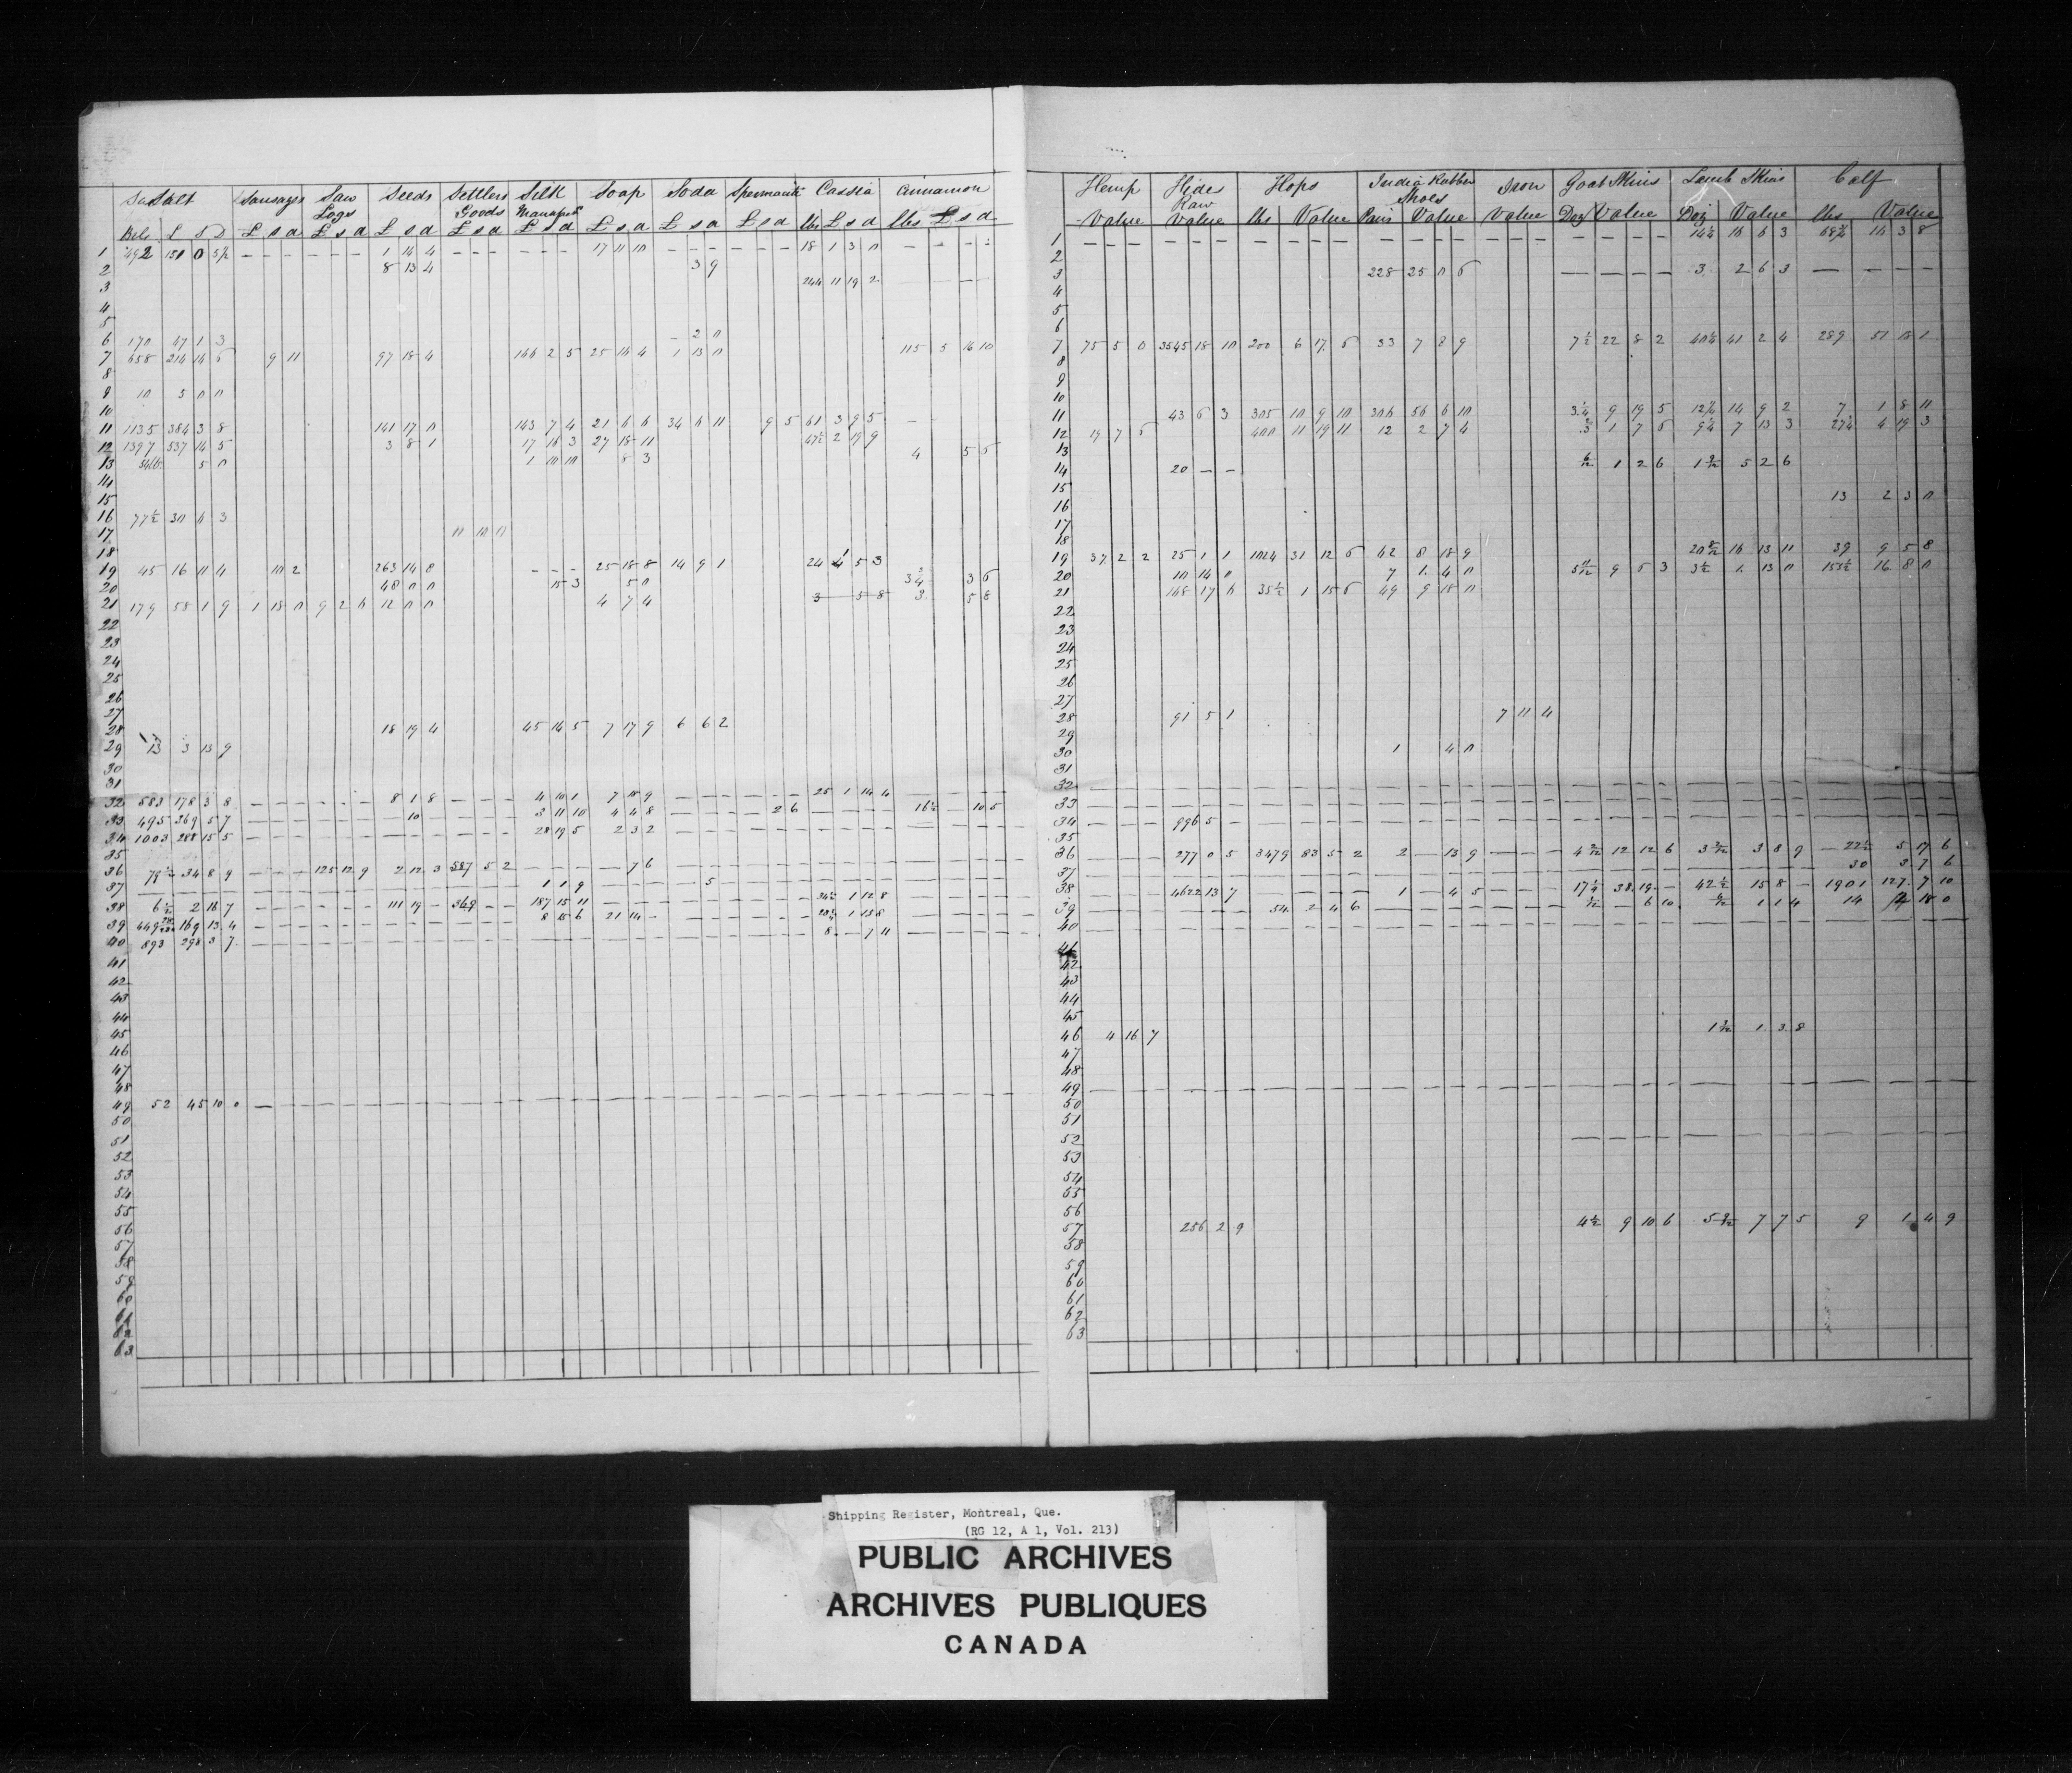 Salt Sausages Saw Logs Seeds Settlers Goods Silk Manufact Soap Soda Spermaceti Cassia Cinnamon
Bls £ S D £ s d £ s d £ s d £ s d £ s d £ s d £ s d £ s d lbs £ s d lbs £ s d
1 492 150 0 5½ - - - - - - 1 14 4 - - - - - - 17 11 10 - - - - - - 18 1 3 0 - - - -
2 8 13 4 3 9
3 244 11 19 2
4
5
6 170 47 1 3 - 2 0
7 658 214 14 6 9 11 97 18 4 146 2 5 25 14 4 1 13 0 115 5 16 10
8
9 10 5 0 0
10
11 1135 384 3 8 141 17 0 143 7 4 21 6 6 34 6 11 9 5 61 3 9 5
12 1397 537 14 5 3 8 1 17 16 3 27 18 11 47½ 2 19 9
13 5 0 1 10 10 8 3 4 5 6
14
15
16 77½ 30 6 3
17 11 10 0
18
19 45 16 11 4 10 2 263 14 8 - - - 25 18 8 14 9 1 24 4 5 3
20 48 0 0 15 3 5 0 3¾ 3 6
21 179 58 1 9 1 18 0 9 2 6 12 0 0 4 7 4 3 5 8 3 5 8
22
23
24
25
26
27
28 18 19 4 45 16 5 7 17 9 6 6 2
29 13 3 15 9
30
31
32 583 178 3 8 - - - - - - 8 1 8 - - - 4 10 1 7 18 9 - - - - - - 25 1 14 4 - - - -
33 495 369 5 7 - - - - - - 10 - - - 3 11 10 4 4 8 - - - 2 6 - - - - 16½ - 10 5
34 1003 288 15 5 - - - - - - - - - - - - 28 19 5 2 3 2 - - - - - - - - - - - - - -
35
36 79½ 34 8 9 - - - 125 12 9 2 12 3 587 5 2 - - - - 7 6 - - - - - - - - - - - - - -
37 1 1 9 5
38 6½ 2 16 7 - - - - - - 111 19 - 369 - - 187 15 11 - - - - - - - - - 34½ 1 12 8 - - - -
39 449 169 13 4 - - - - - - - - - - - - 8 15 6 21 14 - - - - - - - 28½ 1 15 8 - - - -
40 893 298 3 7 - - - - - - - - - - - - - - - - - - - - - - - - 8 - 7 11 - - - -
41
42
43
44
45
46
47
48
49 52 45 10 0 - - - - - - - - - - - - - - - - - - - -
50
51
52
53
54
55
56
57
58
59
60
61
62
63
Hemp Hides Raw Hops India Rubber Shoes Iron Goat Skins Lamb Skins Calf
Value Value lbs Value Pairs Value Value Doz Value Doz Value lbs Value
1 - - - - - - - - - - - - - - - - - - - - - - 14¼ 16 6 3 68¾ 16 3 8
2
3 228 25 0 6 - - - - 3 2 6 3 - - - -
4
5
6
7 75 5 0 3545 18 10 200 6 17 6 33 7 8 9 7½ 22 8 2 40¼ 41 2 4 289 51 18 1
8
9
10
11 43 6 3 305 10 9 10 306 56 6 10 3¼ 9 19 5 14 9 2 7 1 8 11
12 19 7 6 400 11 19 11 12 2 7 4 1 7 6 9¼ 7 13 3 27¼ 4 19 3
13
14 20 - - 6/12 1 2 6 5 2 6
15
16 13 2 3 0
17
18
19 37 2 2 25 1 1 1024 31 12 6 42 8 18 9 20 8/12 16 13 11 39 9 5 8
20 10 14 0 7 1 4 0 9 6 3 3½ 1 13 0 153½ 16 8 0
21 148 17 6 35½ 1 15 6 49 9 18 0
22
23
24
25
26
27
28 91 5 1 7 11 4
29
30 1 4 0
31
32 - - - - - - - - - - - - - - - - - - - - - - - - - - -
33 - - - - - - - - - - - - - - - - - - - - - - - - - - -
34 - - - 996 5 - - - - - - - - - - - - - - - - - - - - - -
35
36 - - - 277 0 5 3479 83 5 2 2 - 13 9 - - - 12 12 6 3 8 9 - 22½ 5 17 6
37 30 3 7 6
38 - - - 4622 13 7 - - - - 1 - 4 5 - - - 17½ 38 19 - 42½ 15 8 - 1901 127 7 10
39 - - - - - - 54 2 4 6 - - - - - - - - 6 10 1 1 4 14 2 18 0
40 - - - - - - - - - - - - - - - - - - - - - - - - - - -
41
42
43
44
45
46 4 16 7 1 3 8
47
48
49 - - - - - - - - - - - - - - - - - - - - - - - - - - -
50
51
52 - - - - - - - - - - - -
53
54
55
56
57 256 2 9 4½ 9 10 6 7 7 5 9 1 4 9
58
59
60
61
62
63
Shipping Register, Montreal, Que.
(RG 12, A 1, Vol. 213)
PUBLIC ARCHIVES
ARCHIVES PUBLIQUES
CANADA